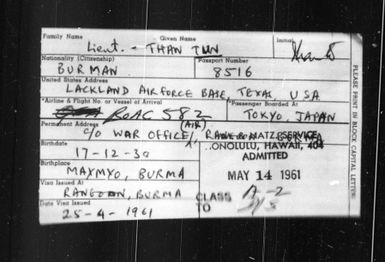 Family Name Given Name Initial
Lieut. - THAN TUN
Nationality (Citizenship) Passport Number
BURMAN 8516
LACKLAND AIRFORCE BASE, TEXAS, USA
Airline & Flight No. or Vessel of Arrival Passenger Boarded At
BOAC 582 TOKYO, JAPAN
Permanent Address
C/O WAR OFFICE (AIR)
Birthdate
17-12-30
HONOLULU, HAWAII, 404
ADMITTED
Birthplace
MAYMYO, BURMA
MAY 14 1961
Visa Issued At
RANGOON, BURMA
CLASS A-2
TO
Date Visa Issued
25-4-1961
PLEASE PRINT IN BLOCK CAPITAL LETTERS